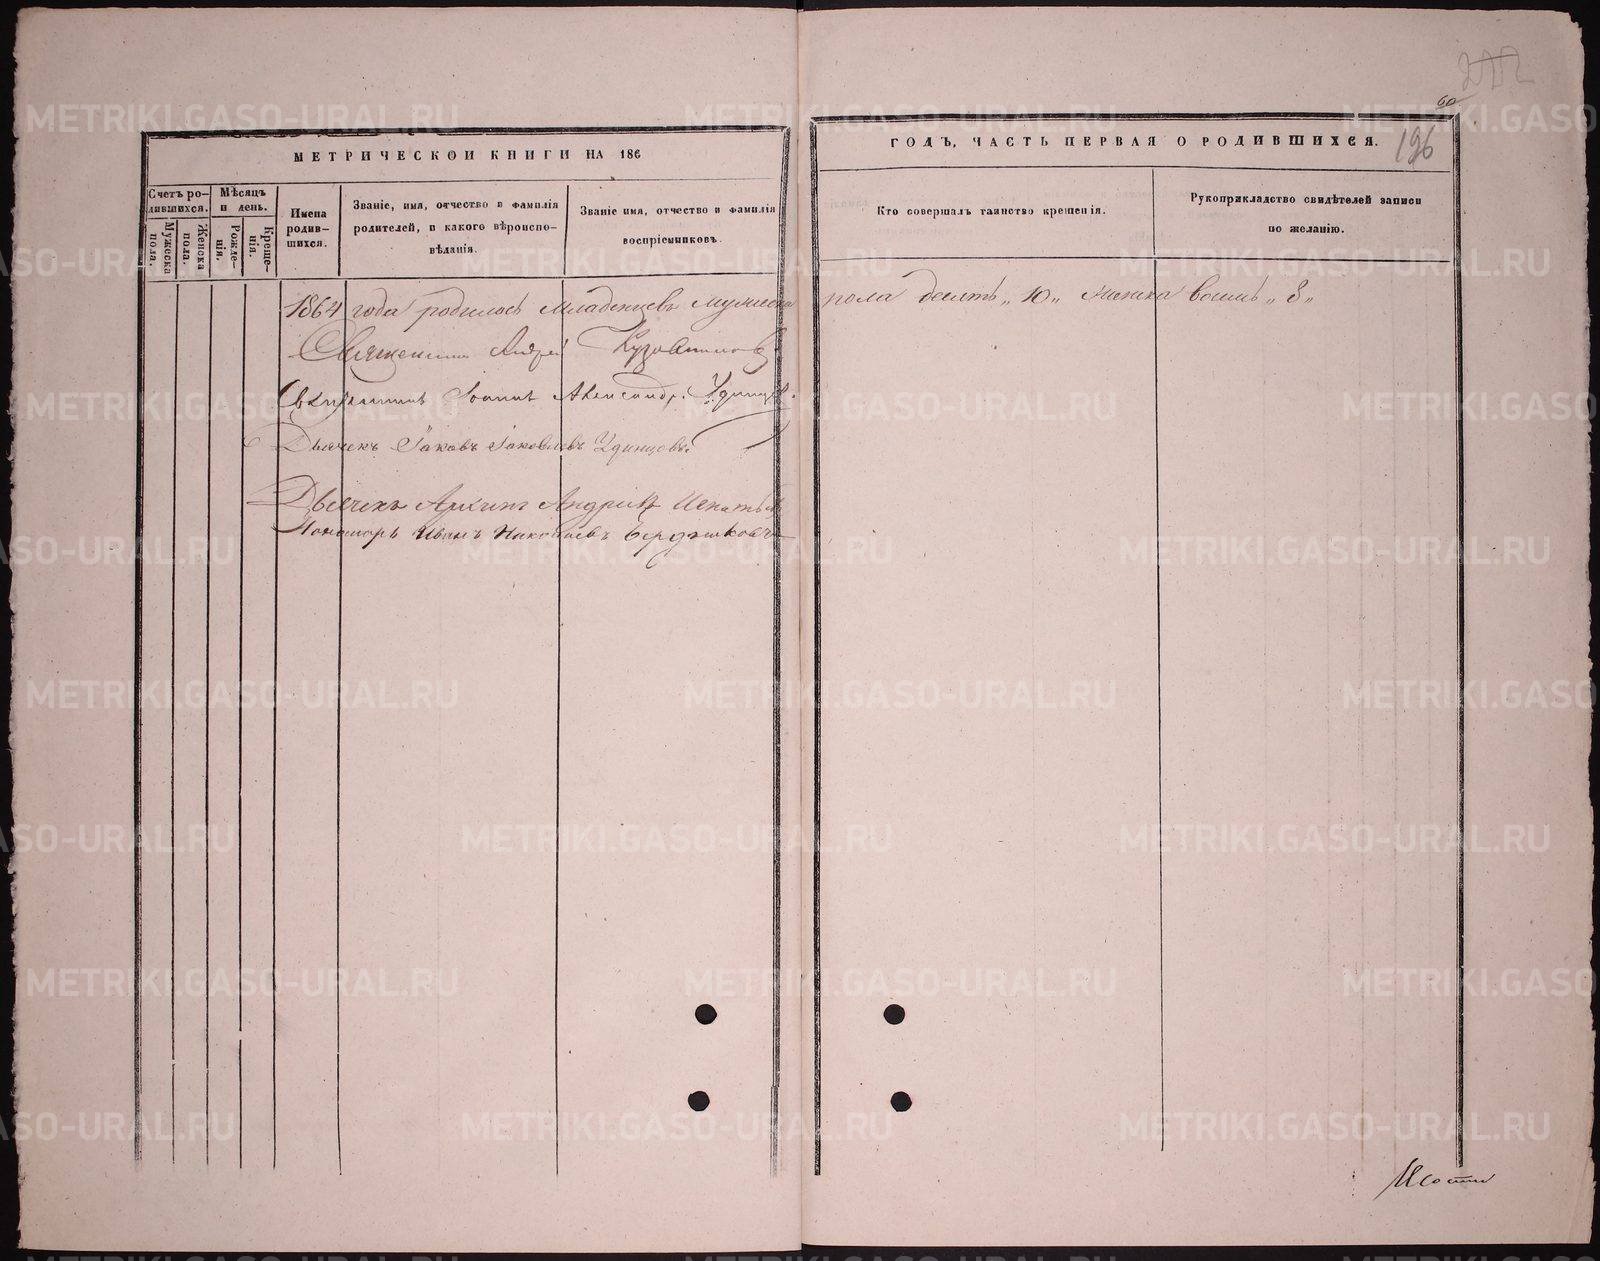 60
196
МЕТРИЧЕСКОЙ КНИГИ НА 186
ГОДЪ, ЧАСТЬ ПЕРВАЯ О РОДИВШИХСЯ.
Счетъ ро-
дившихся.
Мужеска
пола.
Женска
пола.
Мѣсяцъ
и день.
Рожде-
нія.
Креще-
нія.
Имена
родив-
шихся.
Званіе, имя, отчество и фамилія
родителей, и какого вѣроиспо-
вѣданія.
Званіе имя, отчество и фамилія
воспріемниковъ.
Кто совершалъ таинство крещенія.
Рукоприкладство свидѣтелей записи
по желанію.
1864 года родилось младенцевъ мужеска пола десять „10„ женска восемь „8„
Священникъ Андрей
Священникъ Іоаннъ Александр. Удинцевъ.
Дьячекъ Іаковъ Іаковлевъ Удинцовъ.
Дьячекъ Андреевъ Игнатьевъ
Пономарь Иванъ Николаевъ Бердниковъ
METRIKI.GASO-URAL.RU